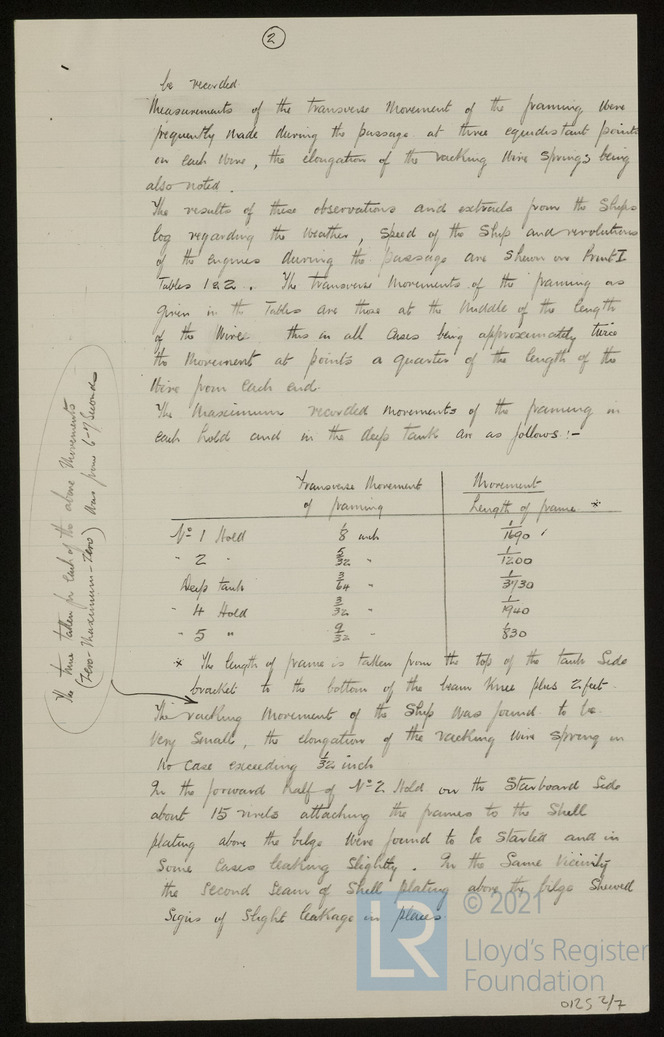 2
be recorded.
Measurements of the transverse movement of the framing were
frequently made during the passage at three equidistant points
on each wire, the elongation of the racking wire springs being
also noted.
The results of these observations and extracts from the Ships
log regarding the weather, speed of the ship and revolutions
of the engines during the passage are shewn on Print I
Tables 1 & 2. The transverse movements of the framing as
given in the Tables are those at the middle of the length
of the wires this in all cases being approximately twice
the movement at points a quarter of the length of the
wire from each end.
The maximum recorded movements of the framing in
each hold and in the deep tank are as follows:-
Transverse Movement Movement
of framing Length of frame *
No 1 Hold 1/8 inch 1/1690
" 2 " 5/32 " 1/1200
Deep tank 3/64 " 1/3730
" 4 Hold 3/32 " 1/1940
" 5 " 9/32 " 1/830
* The length of frame is taken from the top of the tank side
bracket to the bottom of the beam knee plus 2 feet.
The time taken for each of the above movements
(zero-maximum-zero) was from 6-7 seconds
The racking movement of the ship was found to be
very small, the elongation of the racking wire spring in
no case exceeding 1/32 inch
In the forward half of No 2 Hold on the Starboard side
about 15 rivets attaching the frames to the shell
plating above the bilge were found to be started and in
some cases leaking slightly. In the same vicinity
the second seam of shell plating above the bilge shewed
signs of slight leakage in places.
© 2021
LR
Lloyd's Register
Foundation
0125 2/7